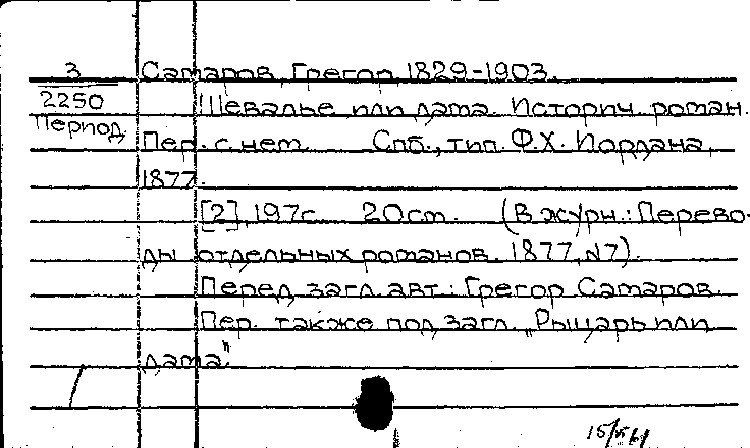 3 Самаров, Грегор, 1829-1903.
2250 Шевалье или дама. Историч. роман.
Период. Пер. с нем. Спб., тип. Ф.Х. Иордана,
1877.
[2], 197с. 20см. (В журн.: Перево-
ды отдельных романов. 1877, N7).
Перед загл. авт.: Грегор Самаров.
Пер. также под загл. „Рыцарь или
дама"